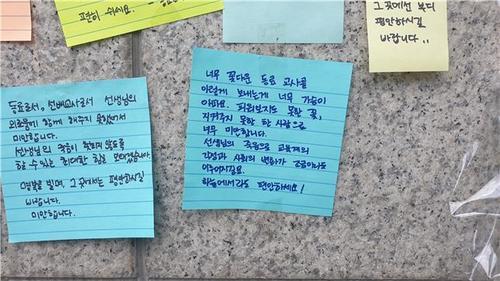 편히 쉬세요.
그곳에선 부디
평안하시길
바랍니다..
동료로서, 선배교사로서 선생님의
외로움에 함께 해주지 못했어서
미안합니다.
선생님의 죽음이 헛되지 않도록
할 수 있는 최대한 힘을 보태겠습니다.
명복을 빌며, 그 곳에서는 평안하시길
바랍니다.
미안합니다.
너무 꽃다운 동료 교사를
이렇게 보내는게 너무 가슴이
아파요. 피워보지도 못한 꽃,
지켜주지 못한 한 사람으로
너무 미안합니다.
선생님의 죽음으로 교육계의
각성과 사회의 변화가 조금이나마
이루어지길요.
하늘에서라도 평안하세요!